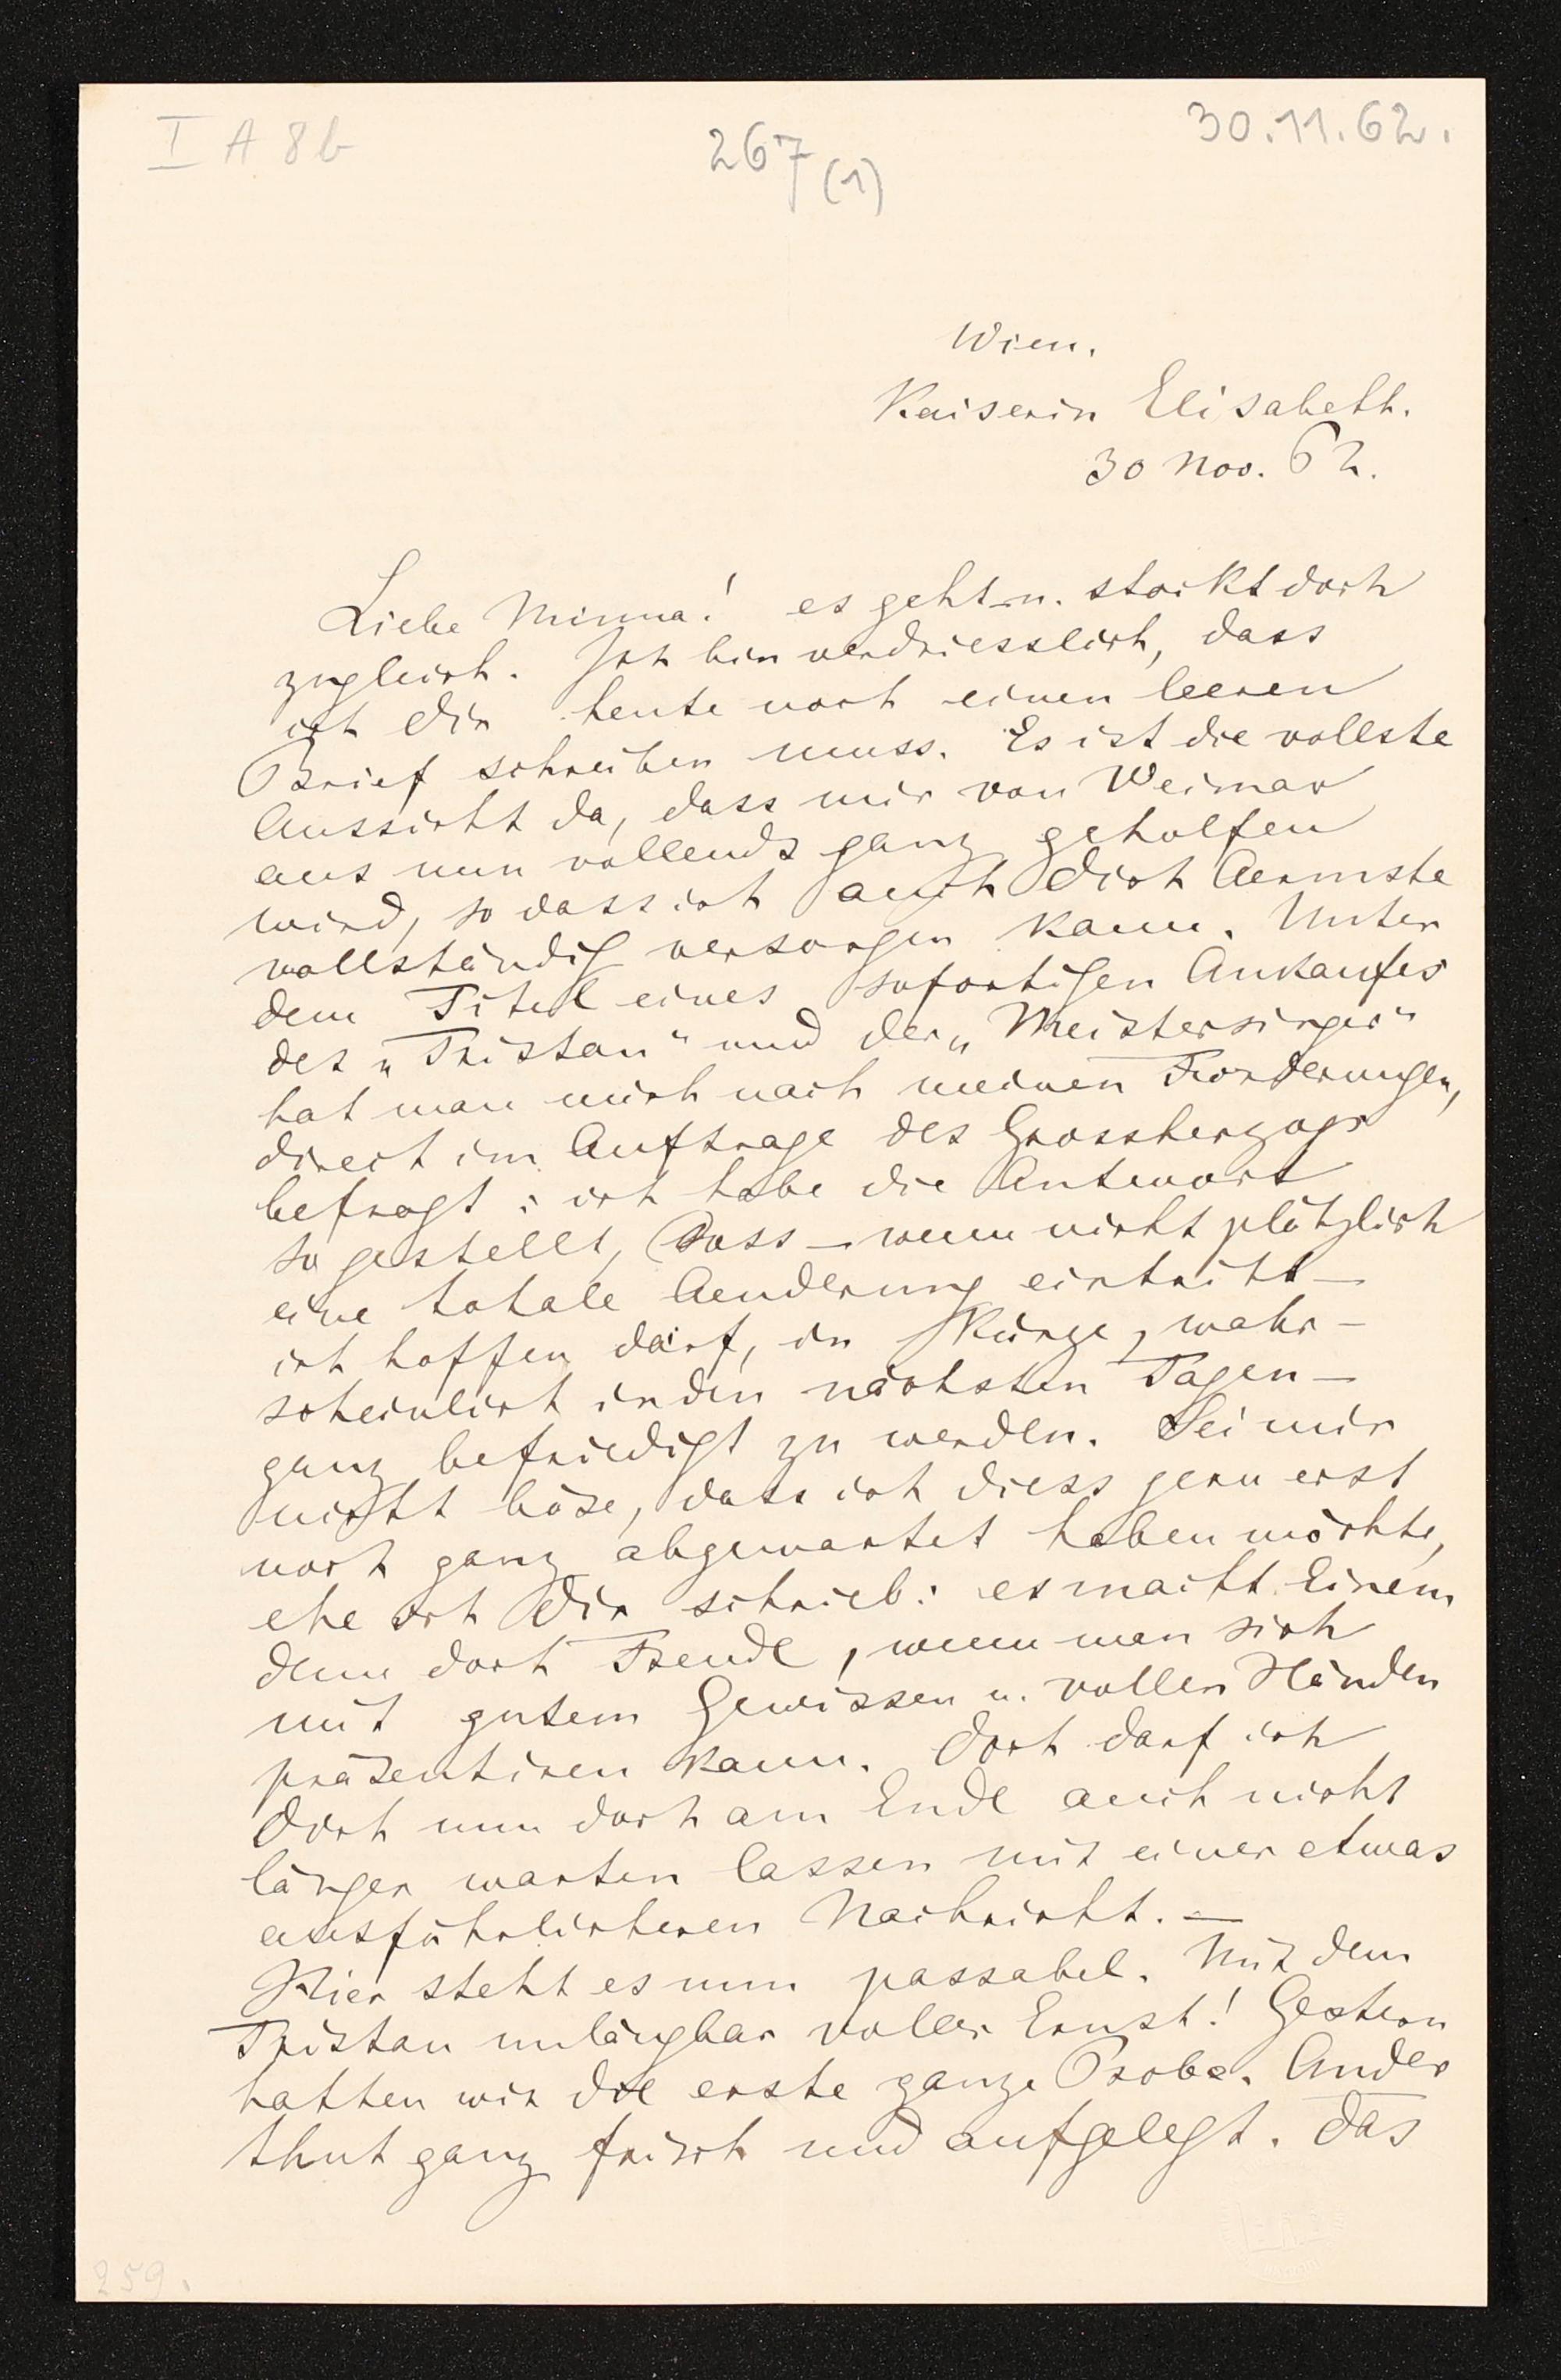 I A 8b
267 (1)
30.11.62.
Wien.
Kaiserin Elisabeth.
30 Nov. 62.
Liebe Minna! es geht u. stockt doch
zugleich. Ich bin verdriesslich, dass
ich Dir heute noch einen leeren
Brief schreiben muss. Es ist die vollste
Aussicht da, dass mir von Weimar
aus nun vollends ganz geholfen
wird, so dass ich auch Dich Aermste
vollständig versorgen kann. Unter
dem Titel eines sofortigen Ankaufes
des „Tristan“ und der „Meistersinger“
hat man mich nach meinen Forderungen,
direct im Auftrage des Grossherzogs
befragt: ich habe die Antwort
so gestellt, dass — wenn nicht plötzlich
eine totale Aenderung eintritt —
ich hoffen darf, in Kürze, wahr-
scheinlich in den nächsten Tagen —
ganz befriedigt zu werden. Sei mir
nicht böse, dass ich diess gern erst
noch ganz abgewartet haben möchte,
ehe ich Dir schrieb: es macht Einem
denn doch Freude, wenn man sich
mit gutem Gewissen u. vollen Händen
präsentiren kann. Doch darf ich
Dich nun doch am Ende auch nicht
länger warten lassen mit einer etwas
ausführlicheren Nachricht. —
Hier steht es nun passabel. Mit dem
Tristan unläugbar voller Ernst! Gestern
hatten wir die erste ganze Probe. Ander
thut ganz frisch und aufgelegt. Das
259.